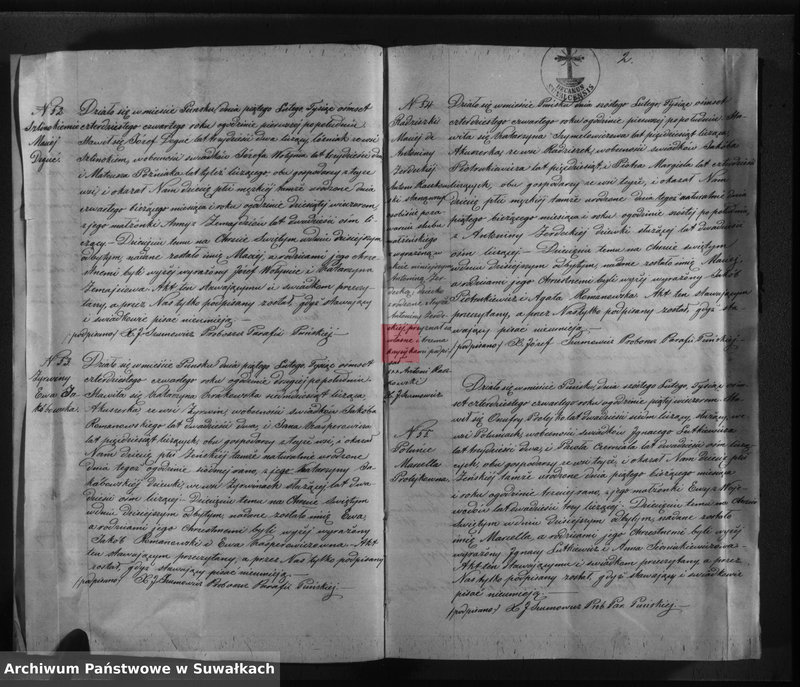 N 52
Szlinokiemie
Maciej
Degue.
Działo się w mieście Puńsku dnia piątego Lutego, Tysiąc ośmset
czterdziestego czwartego roku o godzinie pierwszej po południu
Stawił się Jozef Degue lat trzydzieści dwa liczący
Szlinokiem, w obecności świadków Jozefa Wołynia lat trzydzieści dwa
i Mateusza Poźniaka lat tyleż liczącego obu gospodarzy z tejże
wsi, i okazał Nam dziecię płci męzkiej tamże urodzone dnia
czwartego bieżącego miesiąca i roku o godzinie dziesiątej wieczorem
z jego małżonki Anny z lat dwadzieścia ośm li-
czącej — Dziecięciu temu na Chrzcie Świętym w dniu dzisiejszym
odbytym, nadane zostało imię Maciej, a rodzicami jego chrze-
stnemi byli wyżej wyrażony Józef Wołynie i Katarzyna
Akt ten stawającemu i świadkom przeczy-
tany, a przez Nas tylko podpisany został, gdyż stawający
i świadkowie pisać nieumieją —
(podpisano) X J Szumowicz Proboszcz Parafii Puńskiej —
N 53
Żyrwiny
Ewa Ja-
kubowska.
Działo się w mieście Puńsku dnia piątego Lutego, Tysiąc ośmset
czterdziestego czwartego roku o godzinie drugiej po południu
Stawiła się Katarzyna Krakowska siedmdziesiąt licząca
Akuszerka ze wsi Żyrwin, w obecności świadków Jakoba
Romanowskiego lat dwadzieścia dwa, i Jana Kasperowicza
lat pięćdziesiąt liczących, obu gospodarzy z tejże wsi, i okazał
Nam dziecię płci Zeńskiej tamże naturalnie urodzone
dnia tegoż o godzinie siódmej rano, z jego Katarzyny Ja-
kubowskiej dziewki we wsi Żyrwinach służącej lat dwa-
dzieścia ośm liczącej — Dziecięciu temu na Chrzcie Świętym
w dniu dzisiejszym odbytym, nadane zostało imię Ewa,
a rodzicami jego Chrzestnemi byli wyżej wyrażony
Jakób Romanowski i Ewa Kasperowiczowna — Akt
ten stawającym przeczytany, a przez Nas tylko podpisany
został, gdyż stawający pisać nieumieją —
(podpisano) X J Szumowicz Proboszcz Parafii Puńskiej —
DECANUS
2
N 54
Radziszki
Maciej de
Antoniny
Zordeckiej
Antoni Kaczkow-
ski
wyrażona w
akcie niniejszym
Antoninę Zor-
decką, dziecko
urodzone z tejże
Antoniny Zorde-
ckiej, przyznał za
własne i trzema
krzyżykami podpi-
sał
+++ Antoni Kacz-
kowski
X J Szumowicz
Działo się w mieście Puńsku dnia szóstego Lutego, Tysiąc ośmset
czterdziestego czwartego roku o godzinie pierwszej po południu Sta-
wiła się Katarzyna Szymulewiczowa lat pięćdziesiąt licząca,
Akuszerka, ze wsi Radziszek, w obecności świadków Jakóba
Piotrunkiewicza lat pięćdziesiąt, i Piotra Margiela lat czterdzieści
liczących, obu gospodarzy ze wsi tejże, i okazał Nam
dziecię płci męzkiej tamże urodzone dnia tegoż naturalnie dnia
piątego bieżącego miesiąca i roku o godzinie szóstej po południu,
z Antoniny Zordeckiej dziewki służącej lat dwadzieścia
ośm liczącej — Dziecięciu temu na Chrzcie Świętym
w dniu dzisiejszym odbytym, nadane zostało imię Maciej,
a rodzicami jego Chrzestnemi byli wyżej wyrażony Jakób
Piotrunkiewicz i Agata Romanowska. Akt ten stawającym
przeczytany, a przez Nas tylko podpisany został, gdyż sta-
wający pisać nieumieją —
(podpisano) X Józef Szumowicz Proboszcz Parafii Puńskiej —
N 55
Poluńce
Marcella
Podbykówna
Działo się w mieście Puńsku dnia szóstego Lutego, Tysiąc ośm-
set czterdziestego czwartego roku o godzinie piątej wieczorem. Sta-
wił się Onufry lat dwadzieścia siedm liczący, służący we
wsi Poluńcach, w obecności świadków Ignacego Lutkiewicza
lat trzydzieści dwa, i Pawła lat dwadzieścia ośm liczą-
cych, obu gospodarzy ze wsi tejże, i okazał Nam dziecię płci
Zeńskiej tamże urodzone dnia piątego bieżącego miesiąca
i roku o godzinie trzeciej rano, z jego małżonki Ewy z Woj-
lat dwadzieścia trzy liczącej — Dziecięciu temu na Chrzcie
Świętym w dniu dzisiejszym odbytym, nadane zostało
imię Marcella, a rodzicami jego Chrzestnemi byli wyżej
wyrażony Ignacy Lutkiewicz i Anna
Akt ten Stawającymu i świadkom przeczytany a przez
Nas tylko podpisany został, gdyż stawający i świadkowie
pisać nieumieją —
(podpisano) X J Szumowicz Prob Par Puńskiej —
Archiwum Państwowe w Suwałkach